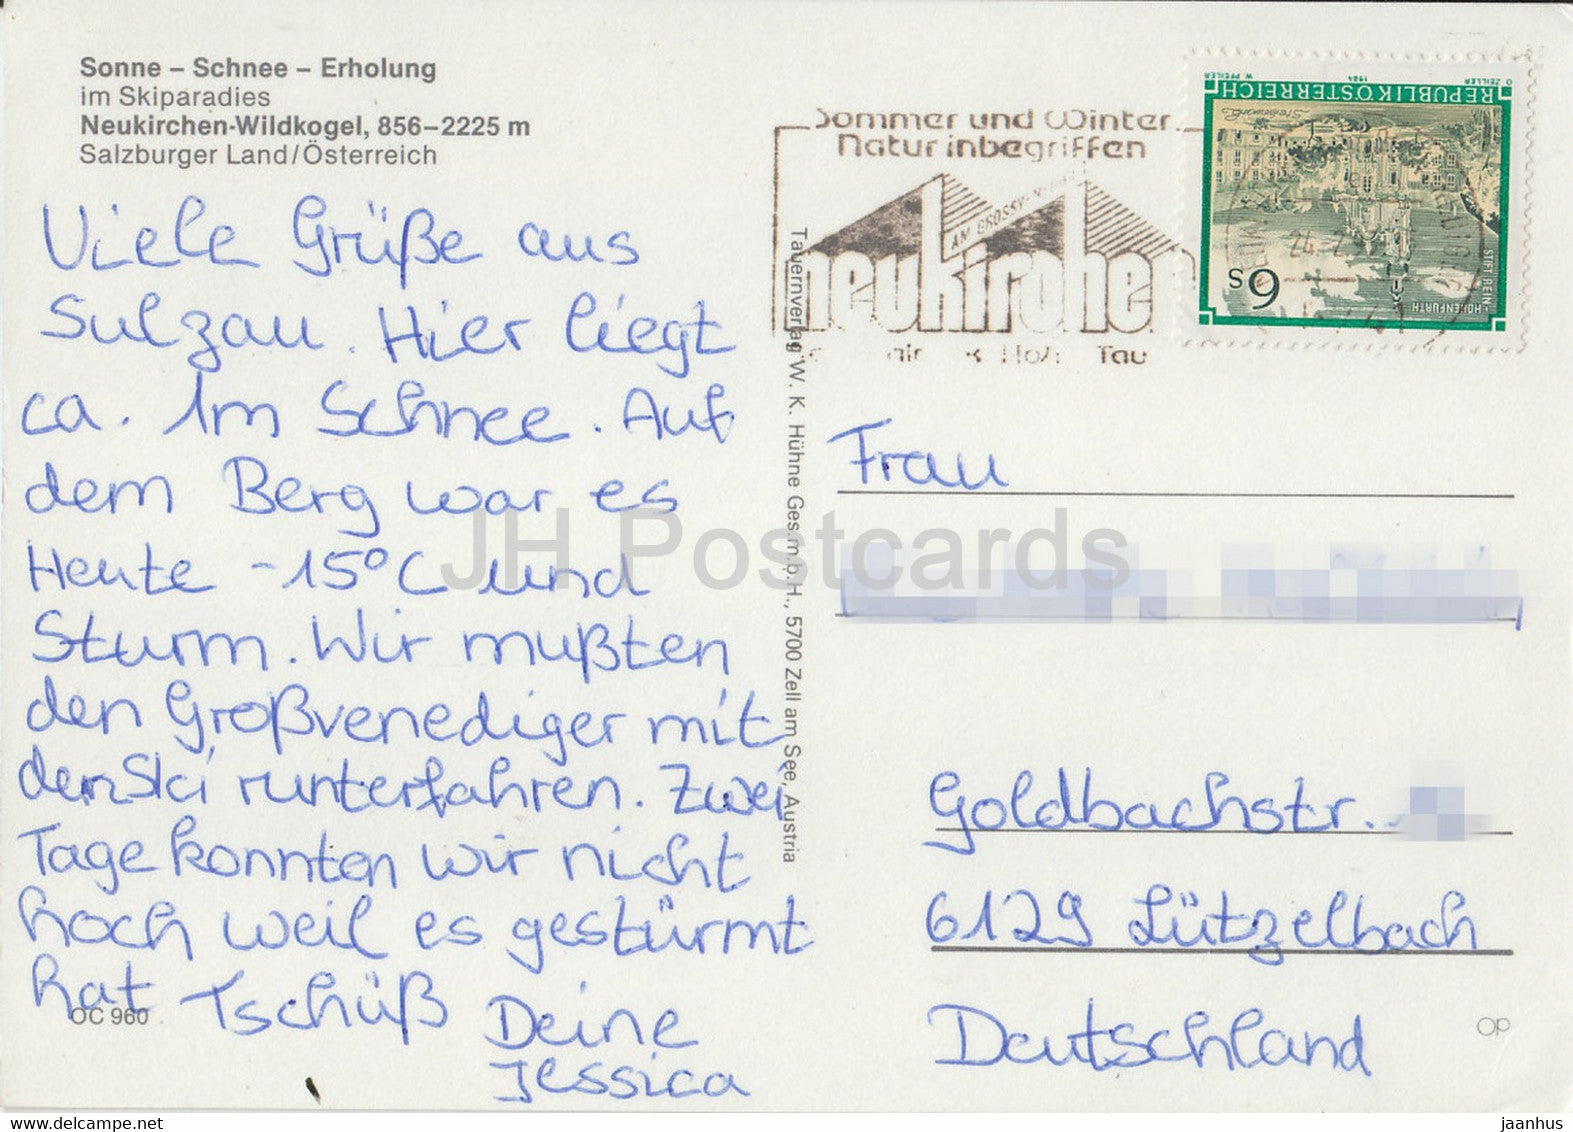 Sonne – Schnee – Erholung
im Skiparadies
Neukirchen-Wildkogel, 856–2225 m
Salzburger Land/Österreich
Viele Grüße aus
Sulzau. Hier liegt
ca. 1m Schnee. Auf
dem Berg war es
Heute -15°C und
Sturm. Wir mußten
den Großvenediger mit
den Ski runterfahren. Zwei
Tage konnten wir nicht
hoch weil es gestürmt
hat Tschüß Deine
Jessica
OC 960
Tauernverlag W. K. Hühne Ges.m.b.H., 5700 Zell am See, Austria
Sommer und Winter
Natur inbegriffen
AM GROSSV
neukirchen
Tau
REPUBLIK ÖSTERREICH
W. PFEILER 1984 O. ZEILLER
Steiermark
STIFT REIN
HOHENFURTH
S 6
24.-2.
Frau
Goldbachstr.
6129 Lützelbach
Deutschland
OP
JH Postcards
www.delcampe.net
jaanhus